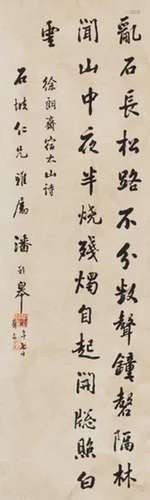 亂石長松路不分數聲鐘磬隔林
聞山中夜半燒殘燭自起開牕照白
雲 徐朗齋宿大山詩
石坡仁兄雅屬 潘齡皋